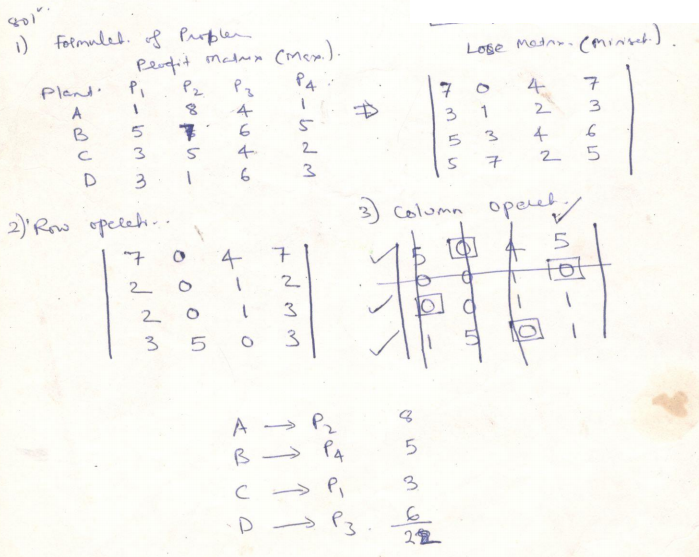 sol".
1) Formulat. of Problem
Profit matrix (Max.).
Plant. P1 P2 P3 P4
A 1 8 4 1
B 5 7 6 5
C 3 5 4 2
D 3 1 6 3
⇒
Loss Matrix. (Minimi.)
7 0 4 7
3 1 2 3
5 3 4 6
5 7 2 5
2) Row operati..
7 0 4 7
2 0 1 2
2 0 1 3
3 5 0 3
3) Column operat. ✓
✓ 5 0 4 5
0 0 1 0
✓ 0 0 1 1
✓ 1 5 0 1
A → P2 8
B → P4 5
C → P1 3
D → P3. 6
22